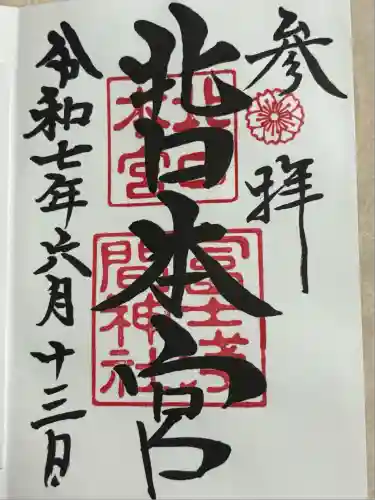 参拝
北口本宮
令和七年六月十三日
北口
本宮
冨士浅
間神社